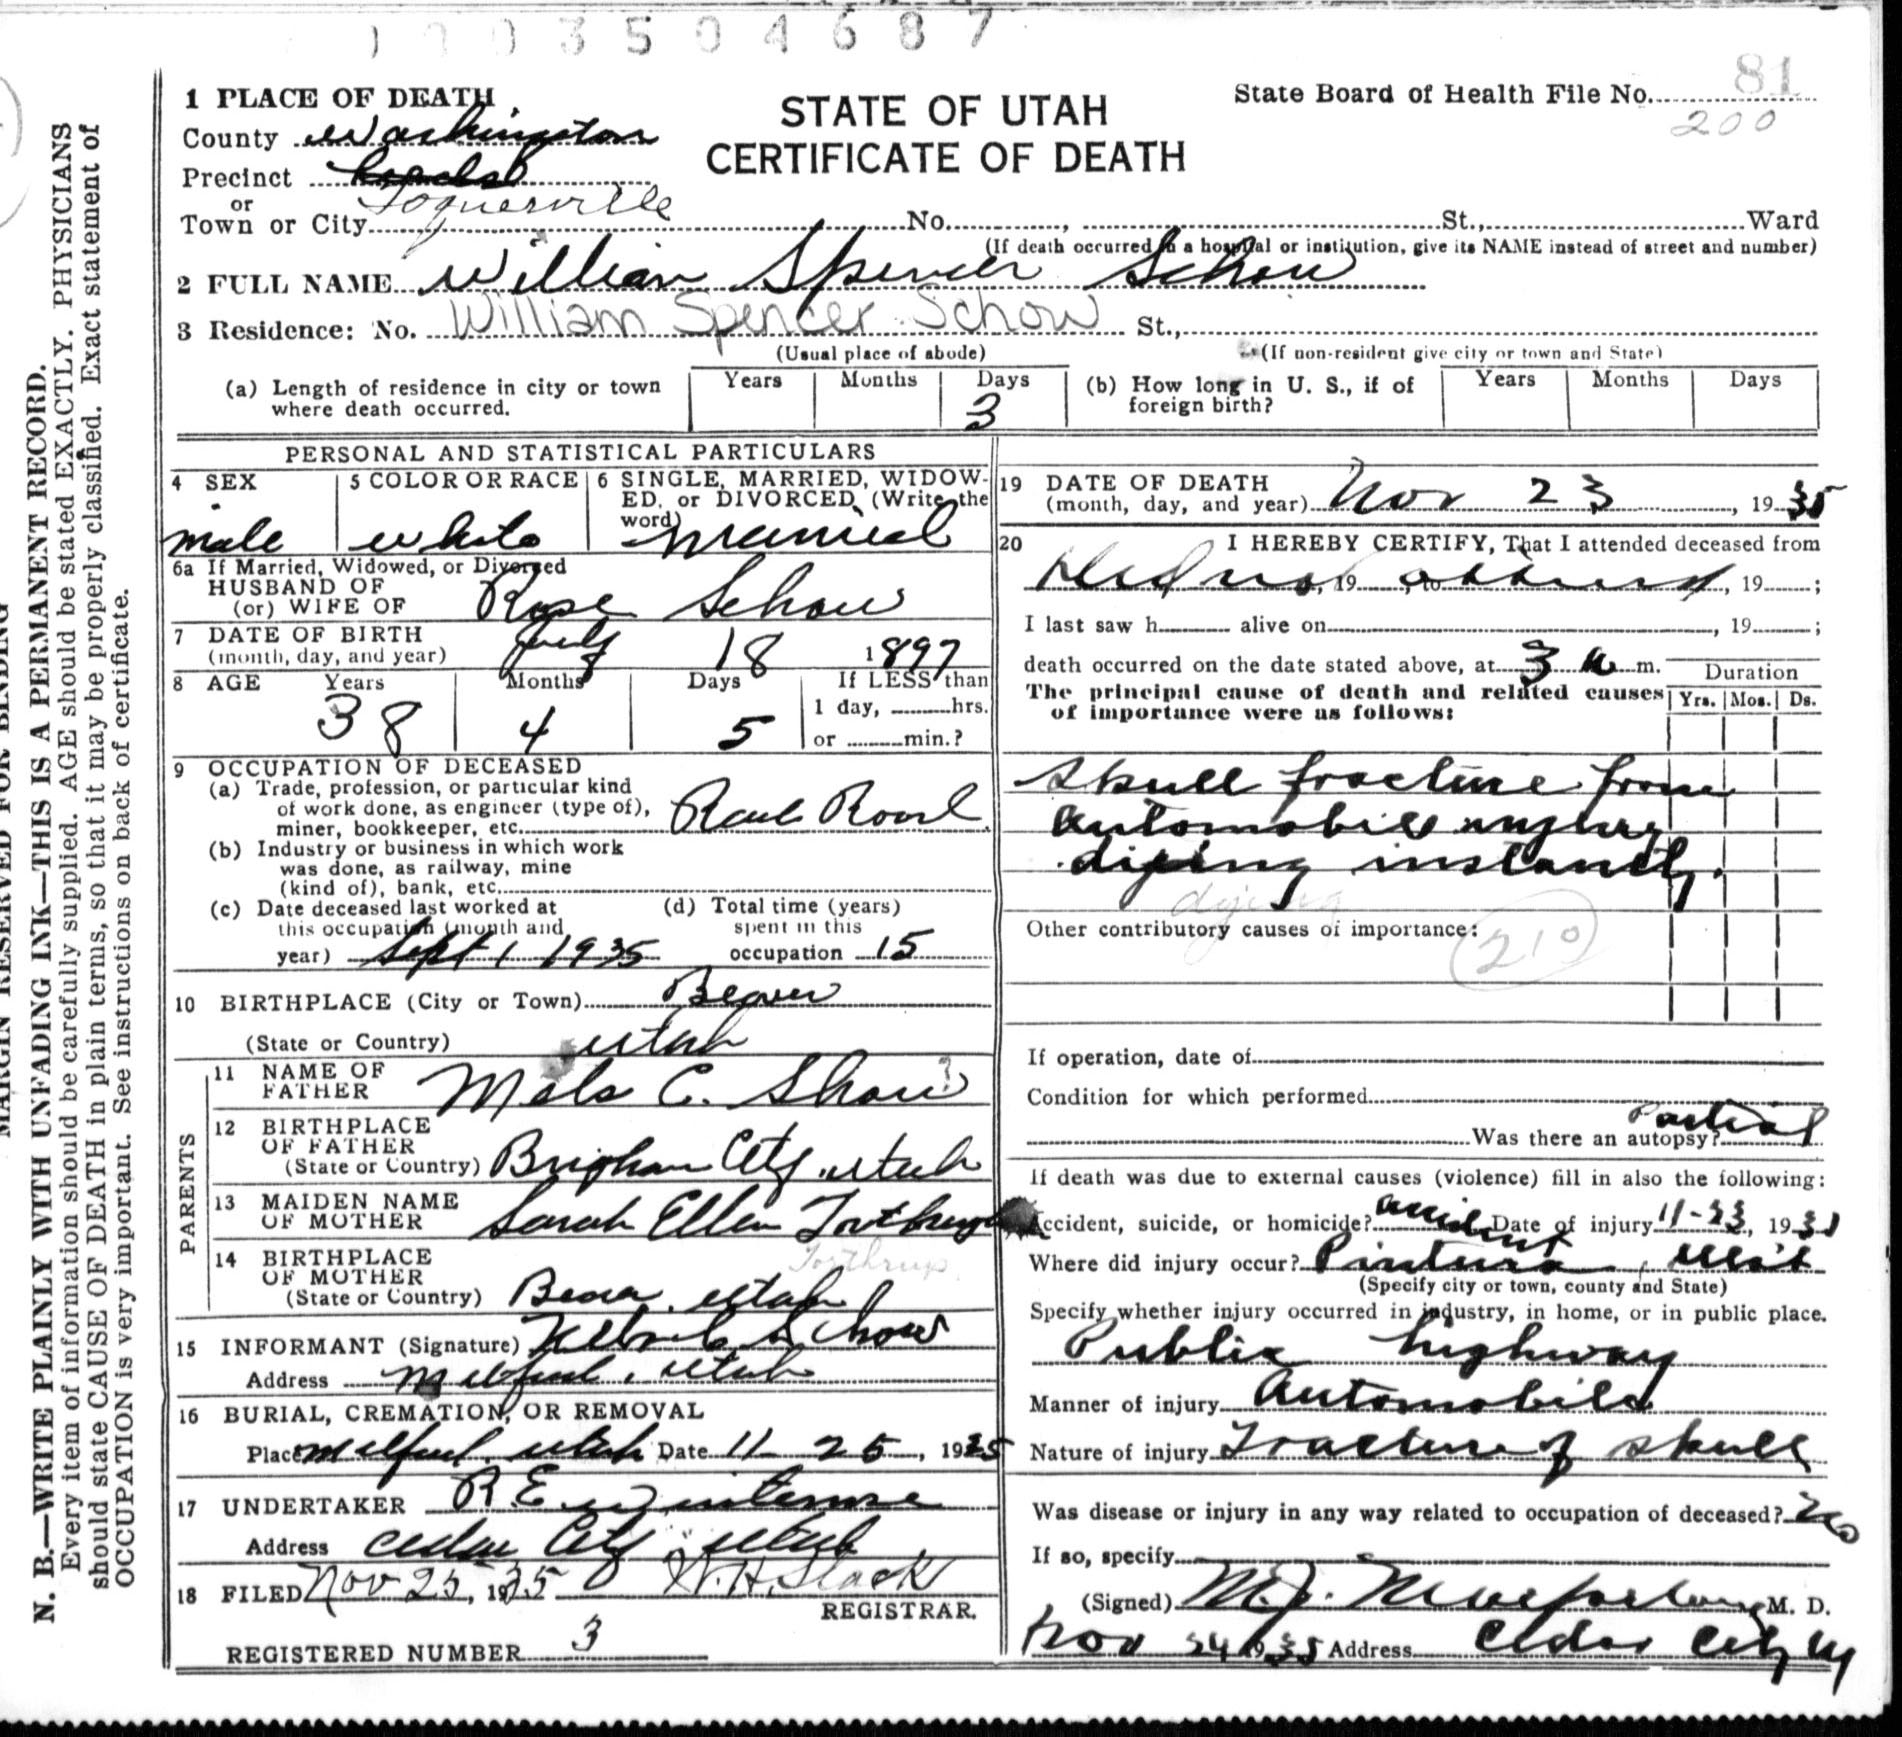 1003504687
81
1 PLACE OF DEATH
STATE OF UTAH
CERTIFICATE OF DEATH
State Board of Health File No.
200
County Washington
Precinct
or
Town or City Toquerville No. , St., Ward
(If death occurred in a hospital or institution, give its NAME instead of street and number)
2 FULL NAME William Spencer Schow
3 Residence: No. William Spencer Schow St.,
(Usual place of abode) (If non-resident give city or town and State)
(a) Length of residence in city or town where death occurred. Years Months Days 3
(b) How long in U. S., if of foreign birth? Years Months Days
PERSONAL AND STATISTICAL PARTICULARS
4 SEX male
5 COLOR OR RACE white
6 SINGLE, MARRIED, WIDOWED, or DIVORCED (Write the word) married
6a If Married, Widowed, or Divorced
HUSBAND OF
(or) WIFE OF Rose Schow
7 DATE OF BIRTH
(month, day, and year) July 18 1897
8 AGE Years 38 Months 4 Days 5 If LESS than
1 day, hrs.
or min.?
9 OCCUPATION OF DECEASED
(a) Trade, profession, or particular kind
of work done, as engineer (type of),
miner, bookkeeper, etc.
(b) Industry or business in which work
was done, as railway, mine
(kind of), bank, etc.
(c) Date deceased last worked at
this occupation (month and
year) Sept 1 1935
(d) Total time (years)
spent in this
occupation 15
10 BIRTHPLACE (City or Town) Beaver
(State or Country) Utah
PARENTS
11 NAME OF
FATHER C. Show ?
12 BIRTHPLACE
OF FATHER
(State or Country) Brigham City Utah
13 MAIDEN NAME
OF MOTHER Sarah Ellen
14 BIRTHPLACE
OF MOTHER
(State or Country) Beaver Utah
15 INFORMANT (Signature) Schow
Address Milford, Utah
16 BURIAL, CREMATION, OR REMOVAL
Place Milford, Utah Date 11 25, 1935
17 UNDERTAKER R.E.
Address Cedar City Utah
18 FILED Nov 25, 1935 W.H. Slack
REGISTRAR.
REGISTERED NUMBER 3
19 DATE OF DEATH
(month, day, and year) Nov 23, 1935
20 I HEREBY CERTIFY, That I attended deceased from
Did not, 19 , to attend, 19 ;
I last saw h alive on , 19 ;
death occurred on the date stated above, at 3 a m.
Duration
Yrs. Mos. Ds.
The principal cause of death and related causes
of importance were as follows:
Skull fracture from
automobile injury
dijing instantly.
dying
Other contributory causes of importance:
210
If operation, date of
Condition for which performed
Was there an autopsy? Partial
If death was due to external causes (violence) fill in also the following:
Accident, suicide, or homicide? accident Date of injury 11-23, 1935
Where did injury occur? Pintura,
(Specify city or town, county and State)
Specify whether injury occurred in industry, in home, or in public place.
Public highway
Manner of injury Automobile
Nature of injury Fracture of skull
Was disease or injury in any way related to occupation of deceased? No
If so, specify
(Signed) M.J. Macfarlane M. D.
Nov 24 1935 Address Cedar City U
MARGIN RESERVED FOR BINDING
N. B.—WRITE PLAINLY WITH UNFADING INK—THIS IS A PERMANENT RECORD.
Every item of information should be carefully supplied. AGE should be stated EXACTLY. PHYSICIANS
should state CAUSE OF DEATH in plain terms, so that it may be properly classified. Exact statement of
OCCUPATION is very important. See instructions on back of certificate.